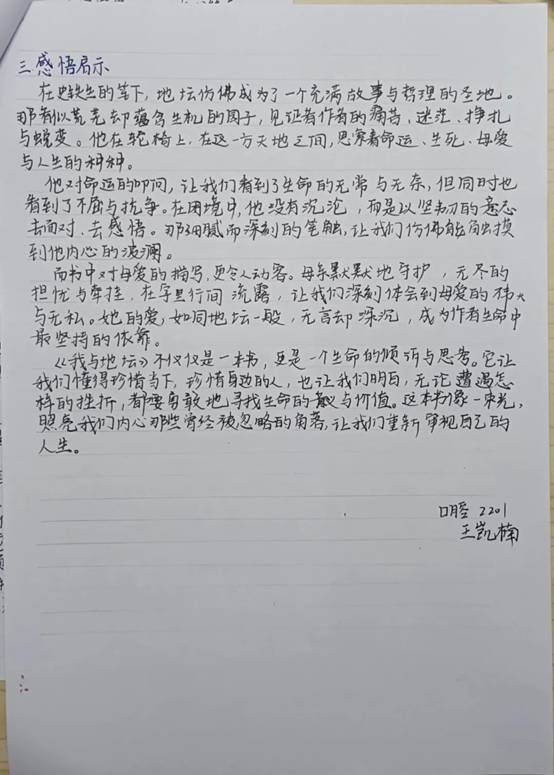 三感悟启示
在史铁生的笔下，地坛仿佛成为了一个充满故事与哲理的圣地。
那看似荒芜却蕴含生机的园子，见证着作者的痛苦、迷茫、挣扎
与蜕变。他在轮椅上，在这一方天地之间，思索着命运、生死、母爱
与人生的种种。
他对命运的叩问，让我们看到了生命的无常与无奈，但同时也
看到了不屈与抗争。在困境中，他没有沉沦，而是以坚韧的意志
去面对、去感悟。那细腻而深刻的笔触，让我们仿佛能触摸
到他内心的波澜。
而书中对母爱的描写，更令人动容。母亲默默地守护，无尽的
担忧与牵挂，在字里行间流露，让我们深刻体会到母爱的伟大
与无私。她的爱，如同地坛一般，无言却深沉，成为作者生命中
最坚持的依靠。
《我与地坛》不仅仅是一本书，更是一个生命的倾诉与思考。它让
我们懂得珍惜当下，珍惜身边的人，也让我们明白，无论遭遇怎
样的挫折，都要勇敢地寻找生命的意义与价值。这本书像一束光，
照亮我们内心那些曾经被忽略的角落，让我们重新审视自己的
人生。
口腔 2201
王凯楠